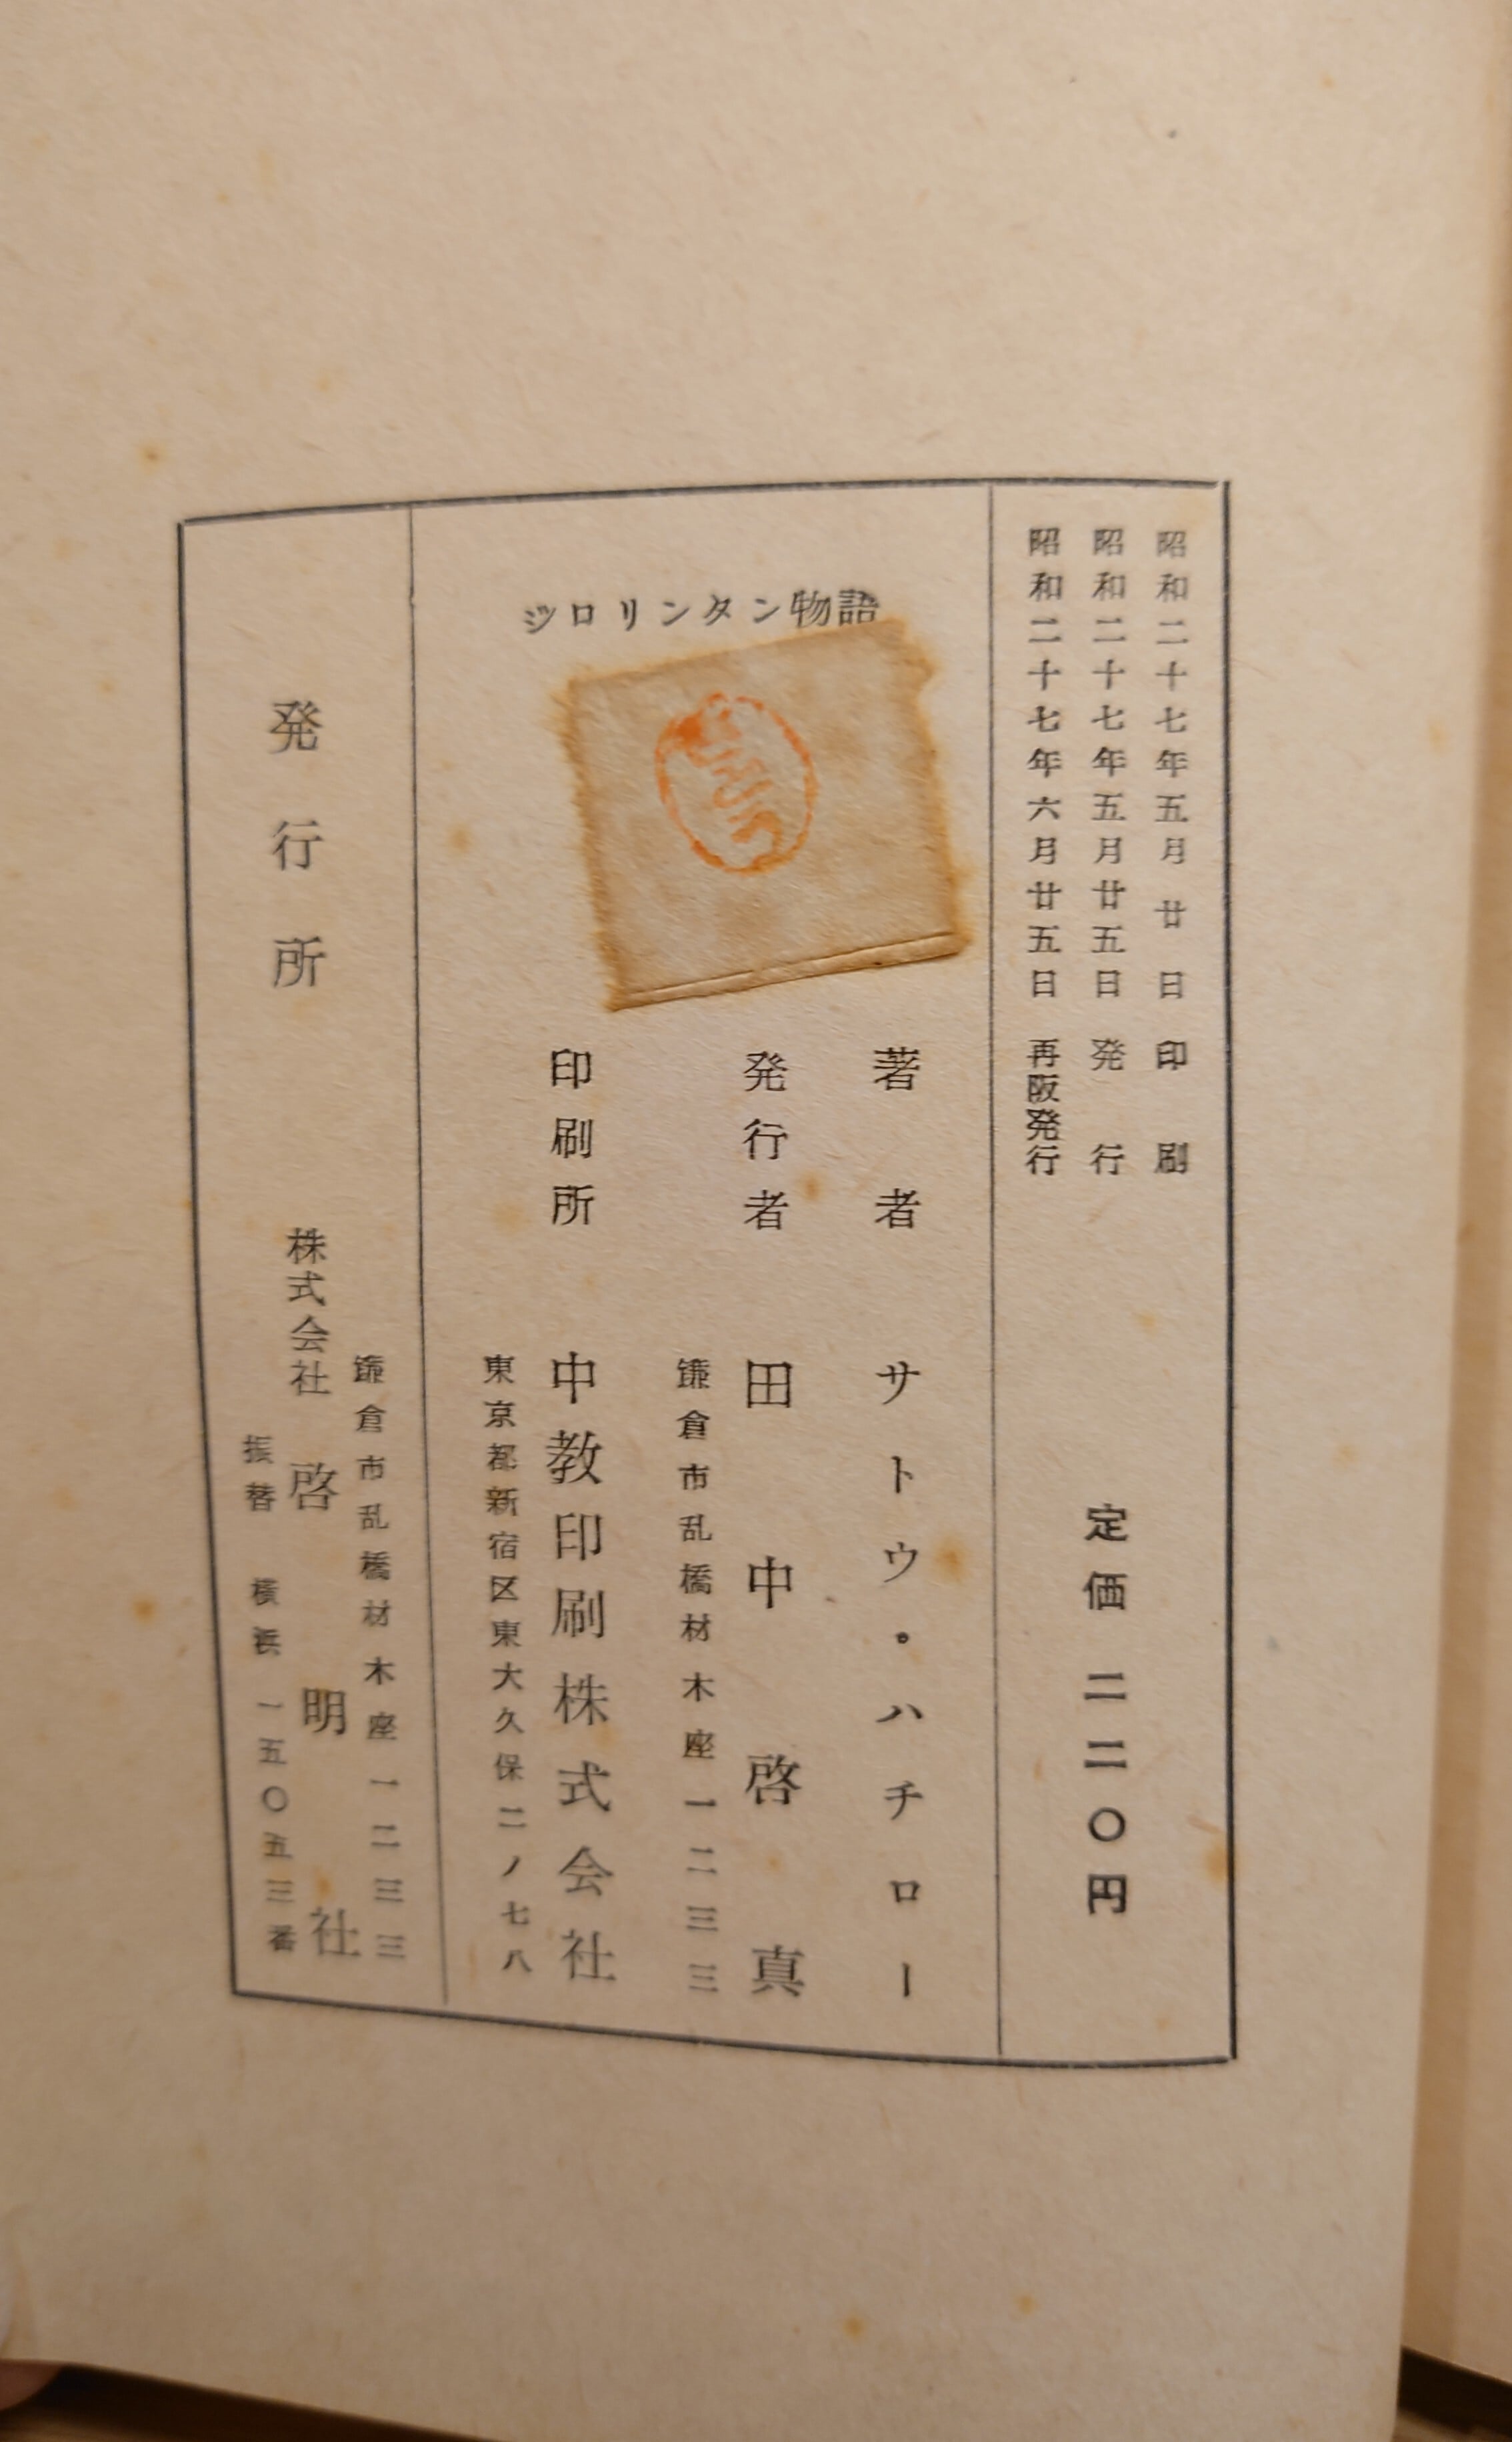 昭和二十七年五月廿日 印刷
昭和二十七年五月廿五日 発行
昭和二十七年六月廿五日 再阪発行
定価 二二〇円
ジロリンタン物語
著者 サトウ・ハチロー
発行者 田中啓真
鎌倉市乱橋材木座一二三三
印刷所 中教印刷株式会社
東京都新宿区東大久保二ノ七八
鎌倉市乱橋材木座一二三三
発行所 株式会社 啓明社
振替 横浜一五〇五三番